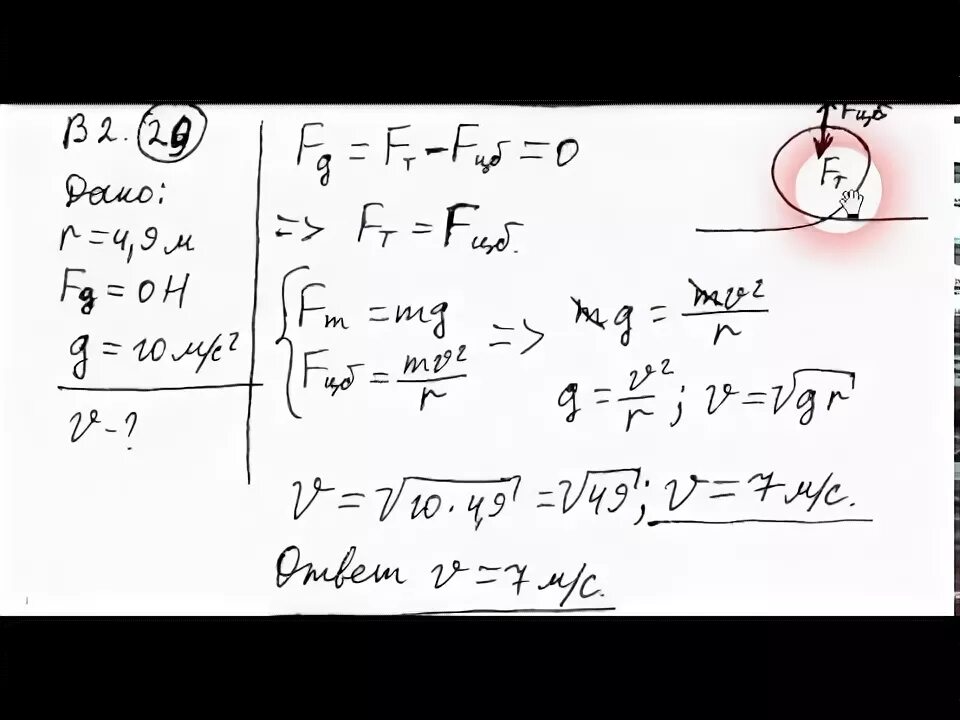 В2. 29
Дано:
r = 4,9 м
Fд = 0 Н
g = 10 м/с²
v - ?
Fд = Fт - Fцб = 0
=> Fт = Fцб.
Fт = mg
Fцб = mv²/r
=> mg = mv²/r
g = v²/r ; v = √gr
v = √10·4,9 = √49 ; v = 7 м/с.
Ответ v = 7 м/с.
Fцб
Fт